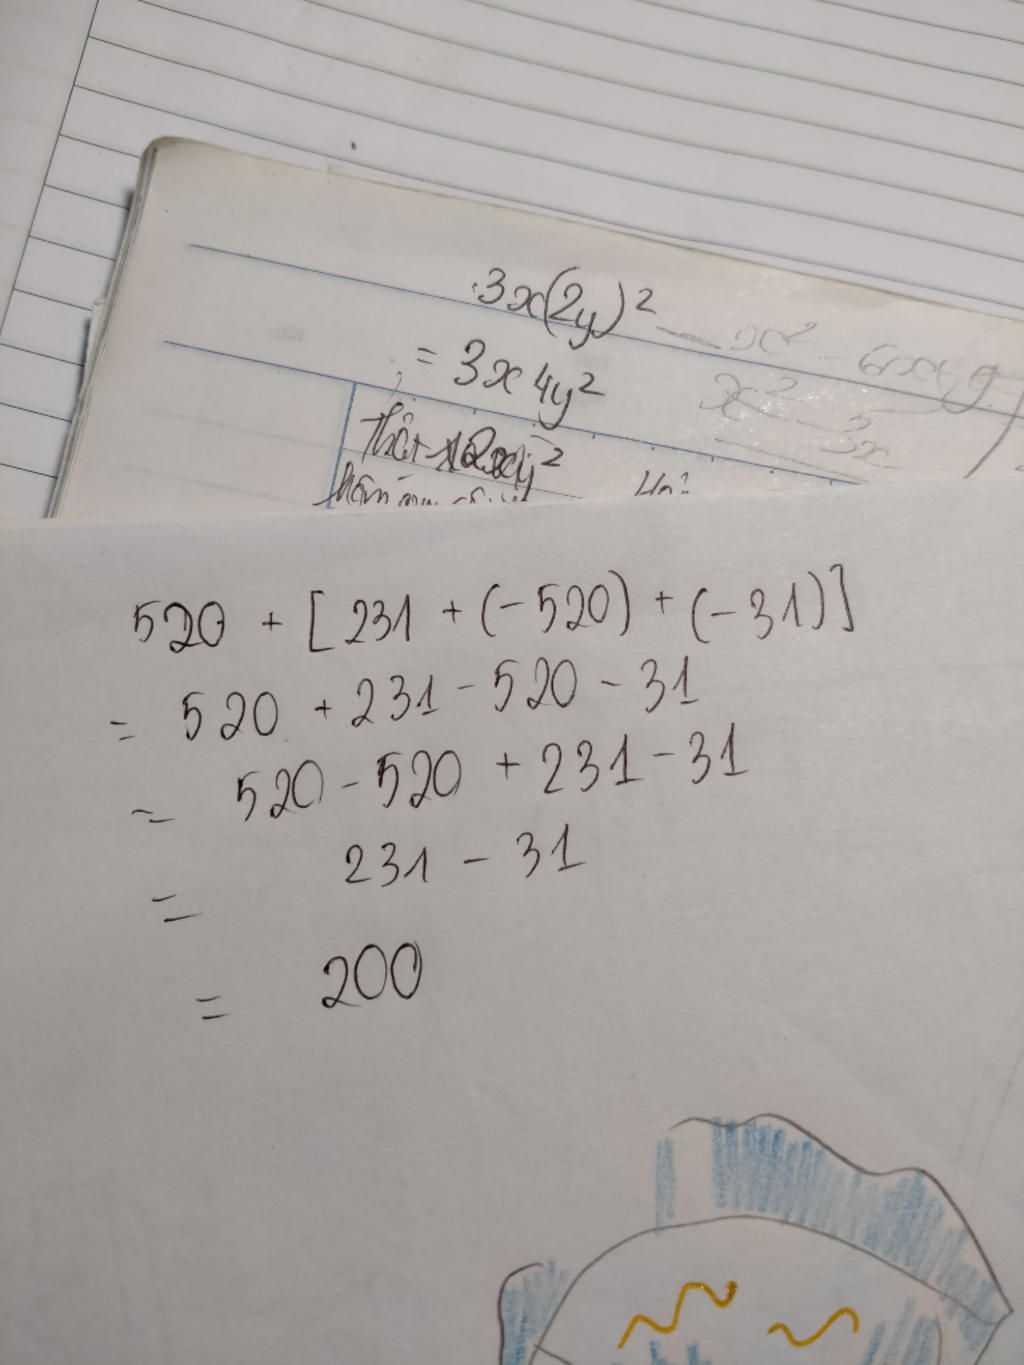 3x(2y)²
x² - 6x + 9
= 3x 4y²
x² - 3x
12xy²
520 + [231 + (-520) + (-31)]
= 520 + 231 - 520 - 31
= 520 - 520 + 231 - 31
= 231 - 31
= 200